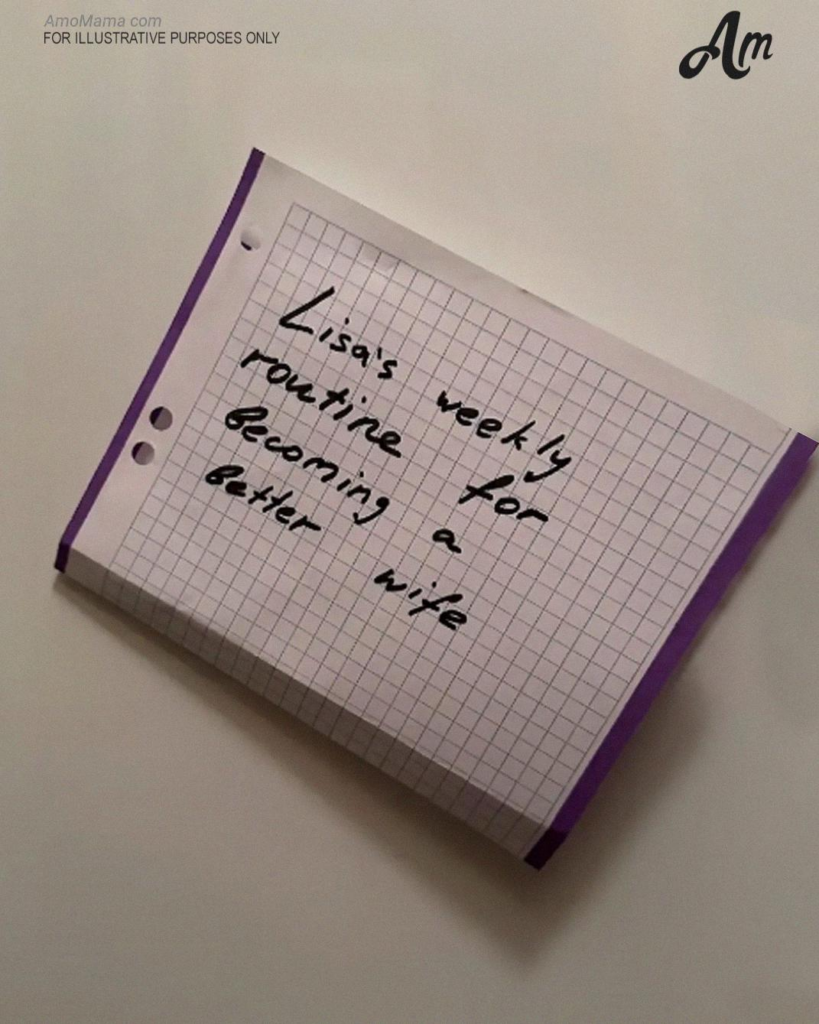 AmoMama com
FOR ILLUSTRATIVE PURPOSES ONLY
Am
Lisa's weekly
routine for
becoming a
better wife